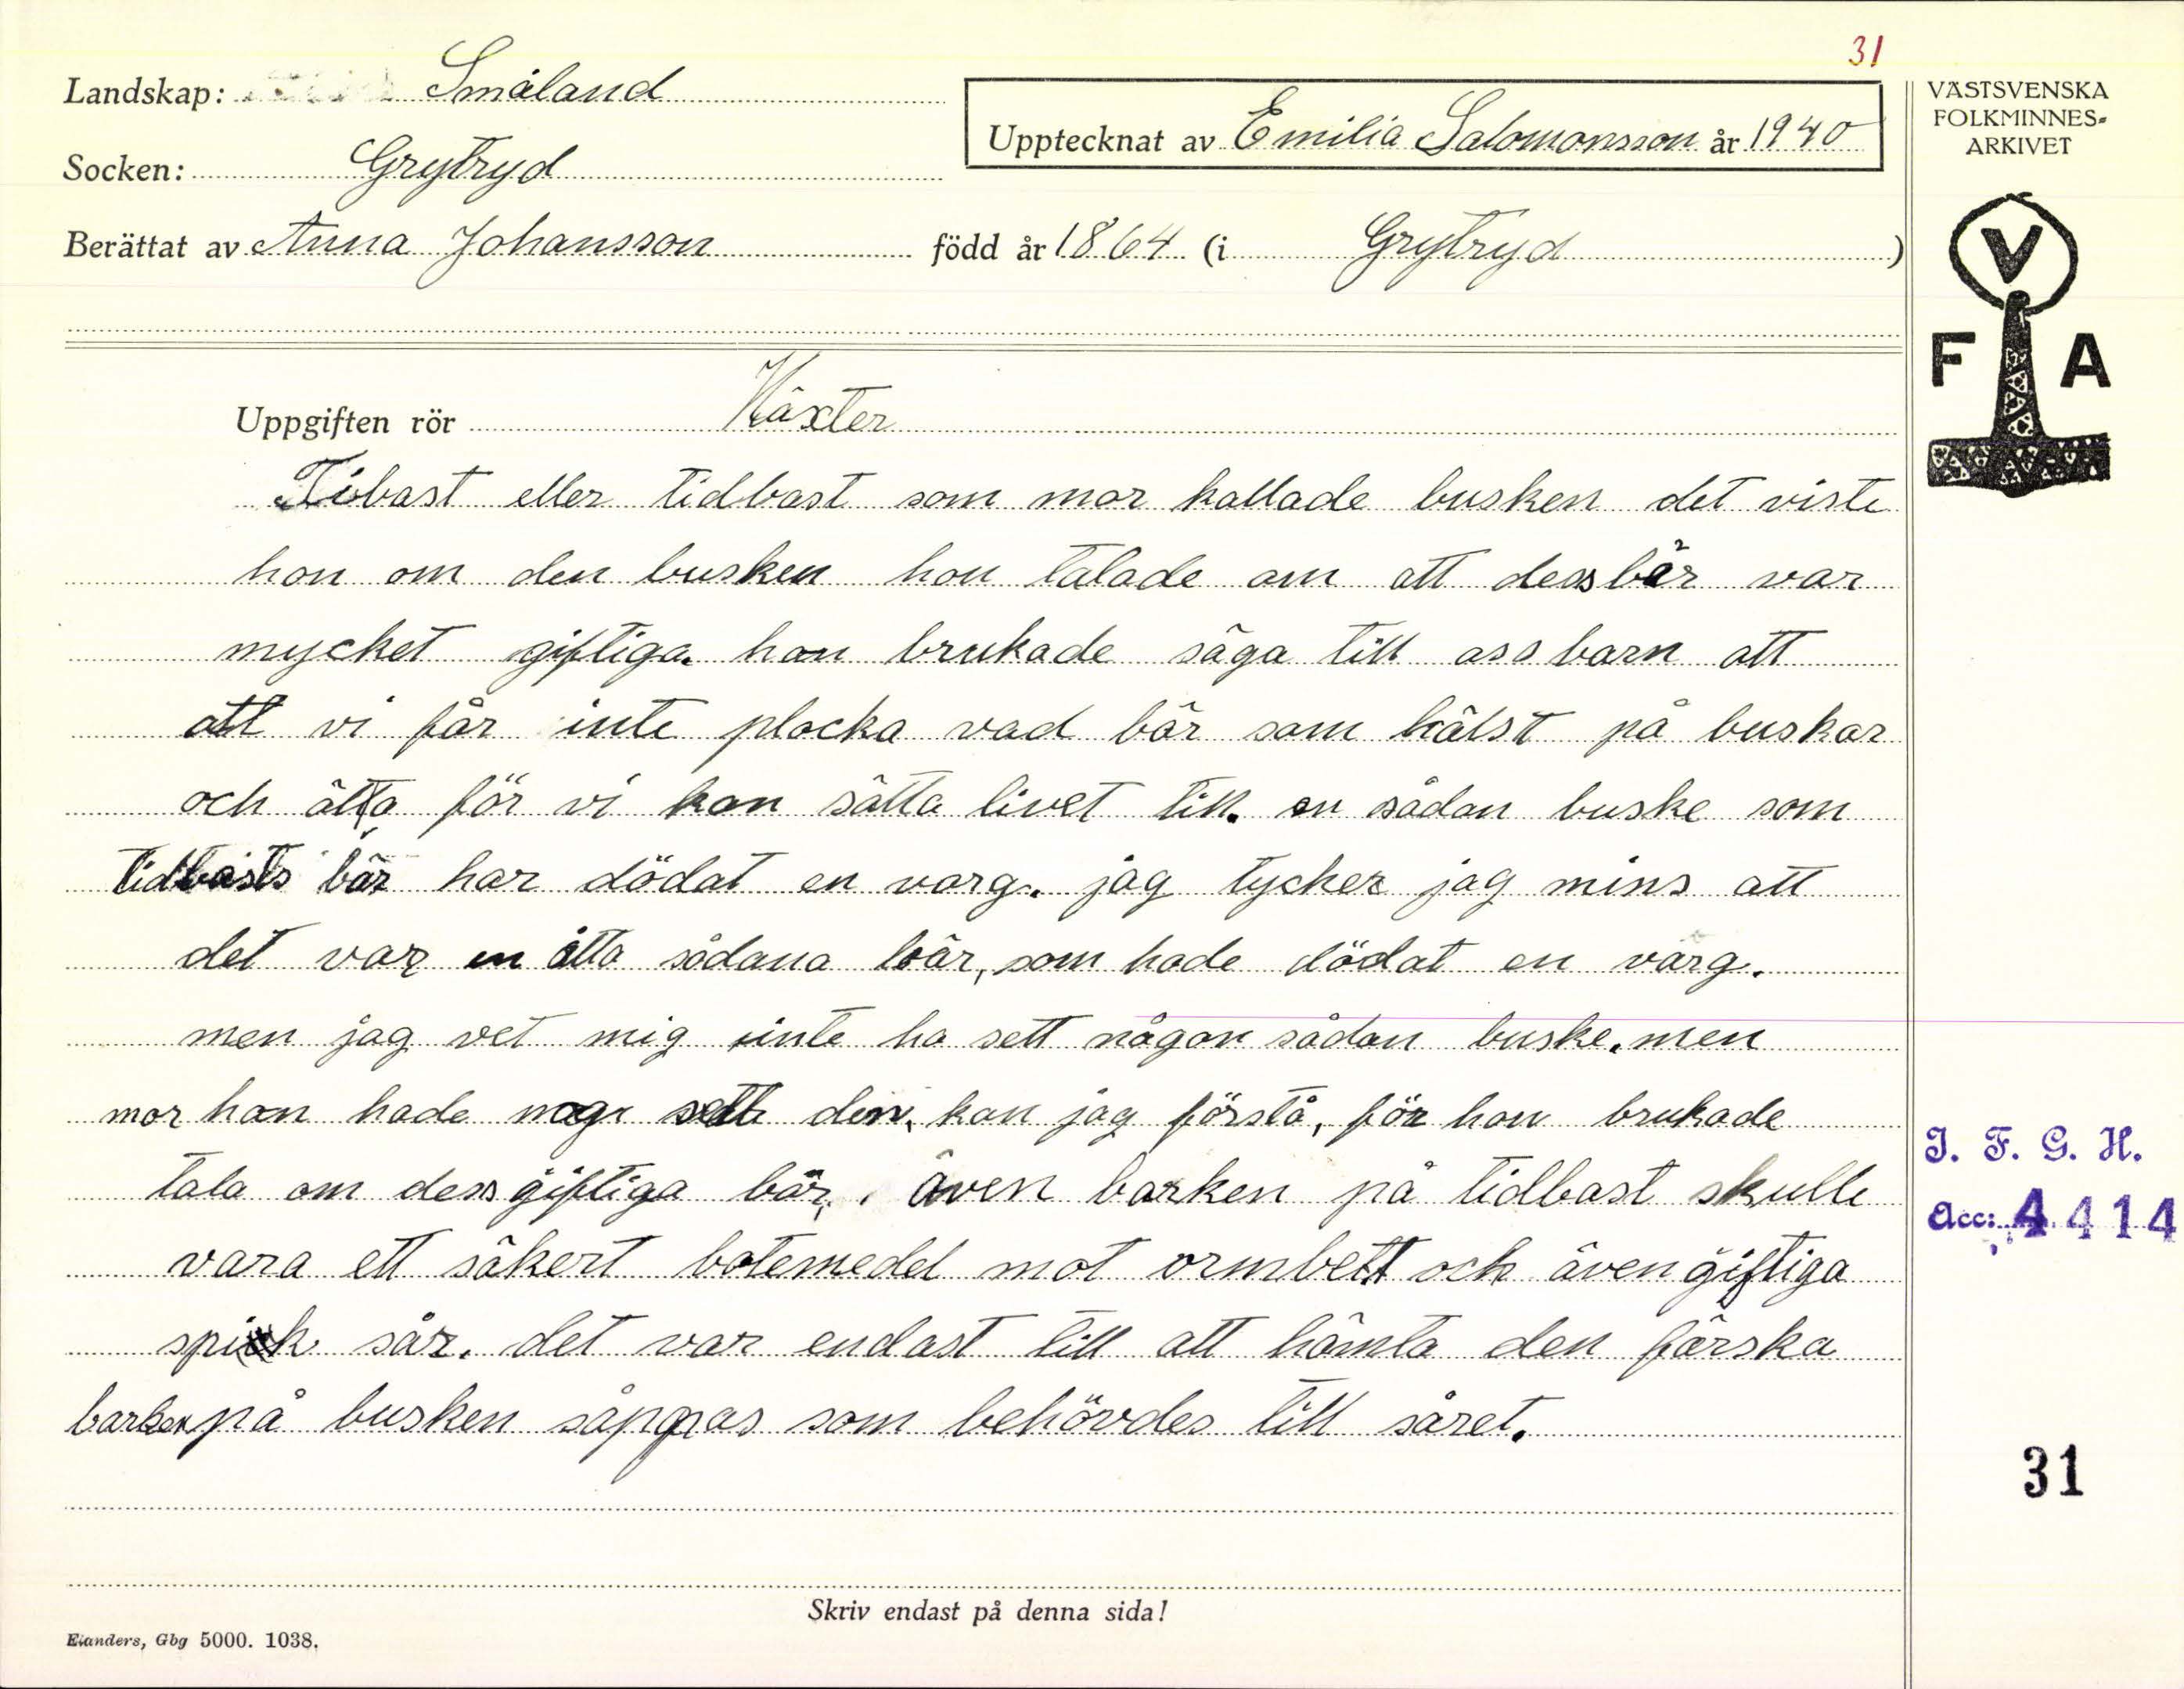 31
Landskap: Småland
Upptecknat av Emilia Salomonsson år 1940
Socken: Grytryd
Berättat av Anna Johansson född år 1864 (i Grytryd )
VÄSTSVENSKA
FOLKMINNES-
ARKIVET
V
F A
Uppgiften rör Växter
Tibast eller tidbast som mor kallade busken det viste
hon om den busken hon talade om att dess bär var
mycket giftiga. hon brukade säga till oss barn att
att vi får inte plocka vad bär som hälst på buskar
och ätta för vi kan sätta livet till. en sådan buske som
tidbasts bär har dödat en varg. jag tycker jag mins att
det var en åtta sådana bär, som hade dödat en varg.
men jag vet mig inte ha sett någon sådan buske. men
mor hon hade nog sett den, kan jag förstå, för hon brukade
tala om dess giftiga bär. även barken på tidbast skulle
vara ett säkert botemedel mot ormbett och även giftiga
spik sår. det var endast till att hämta den färska
barken på busken såpgas som behövdes till såret.
J. F. G. H.
Acc: 4414
31
Skriv endast på denna sida!
Elanders, Gbg 5000. 1038.